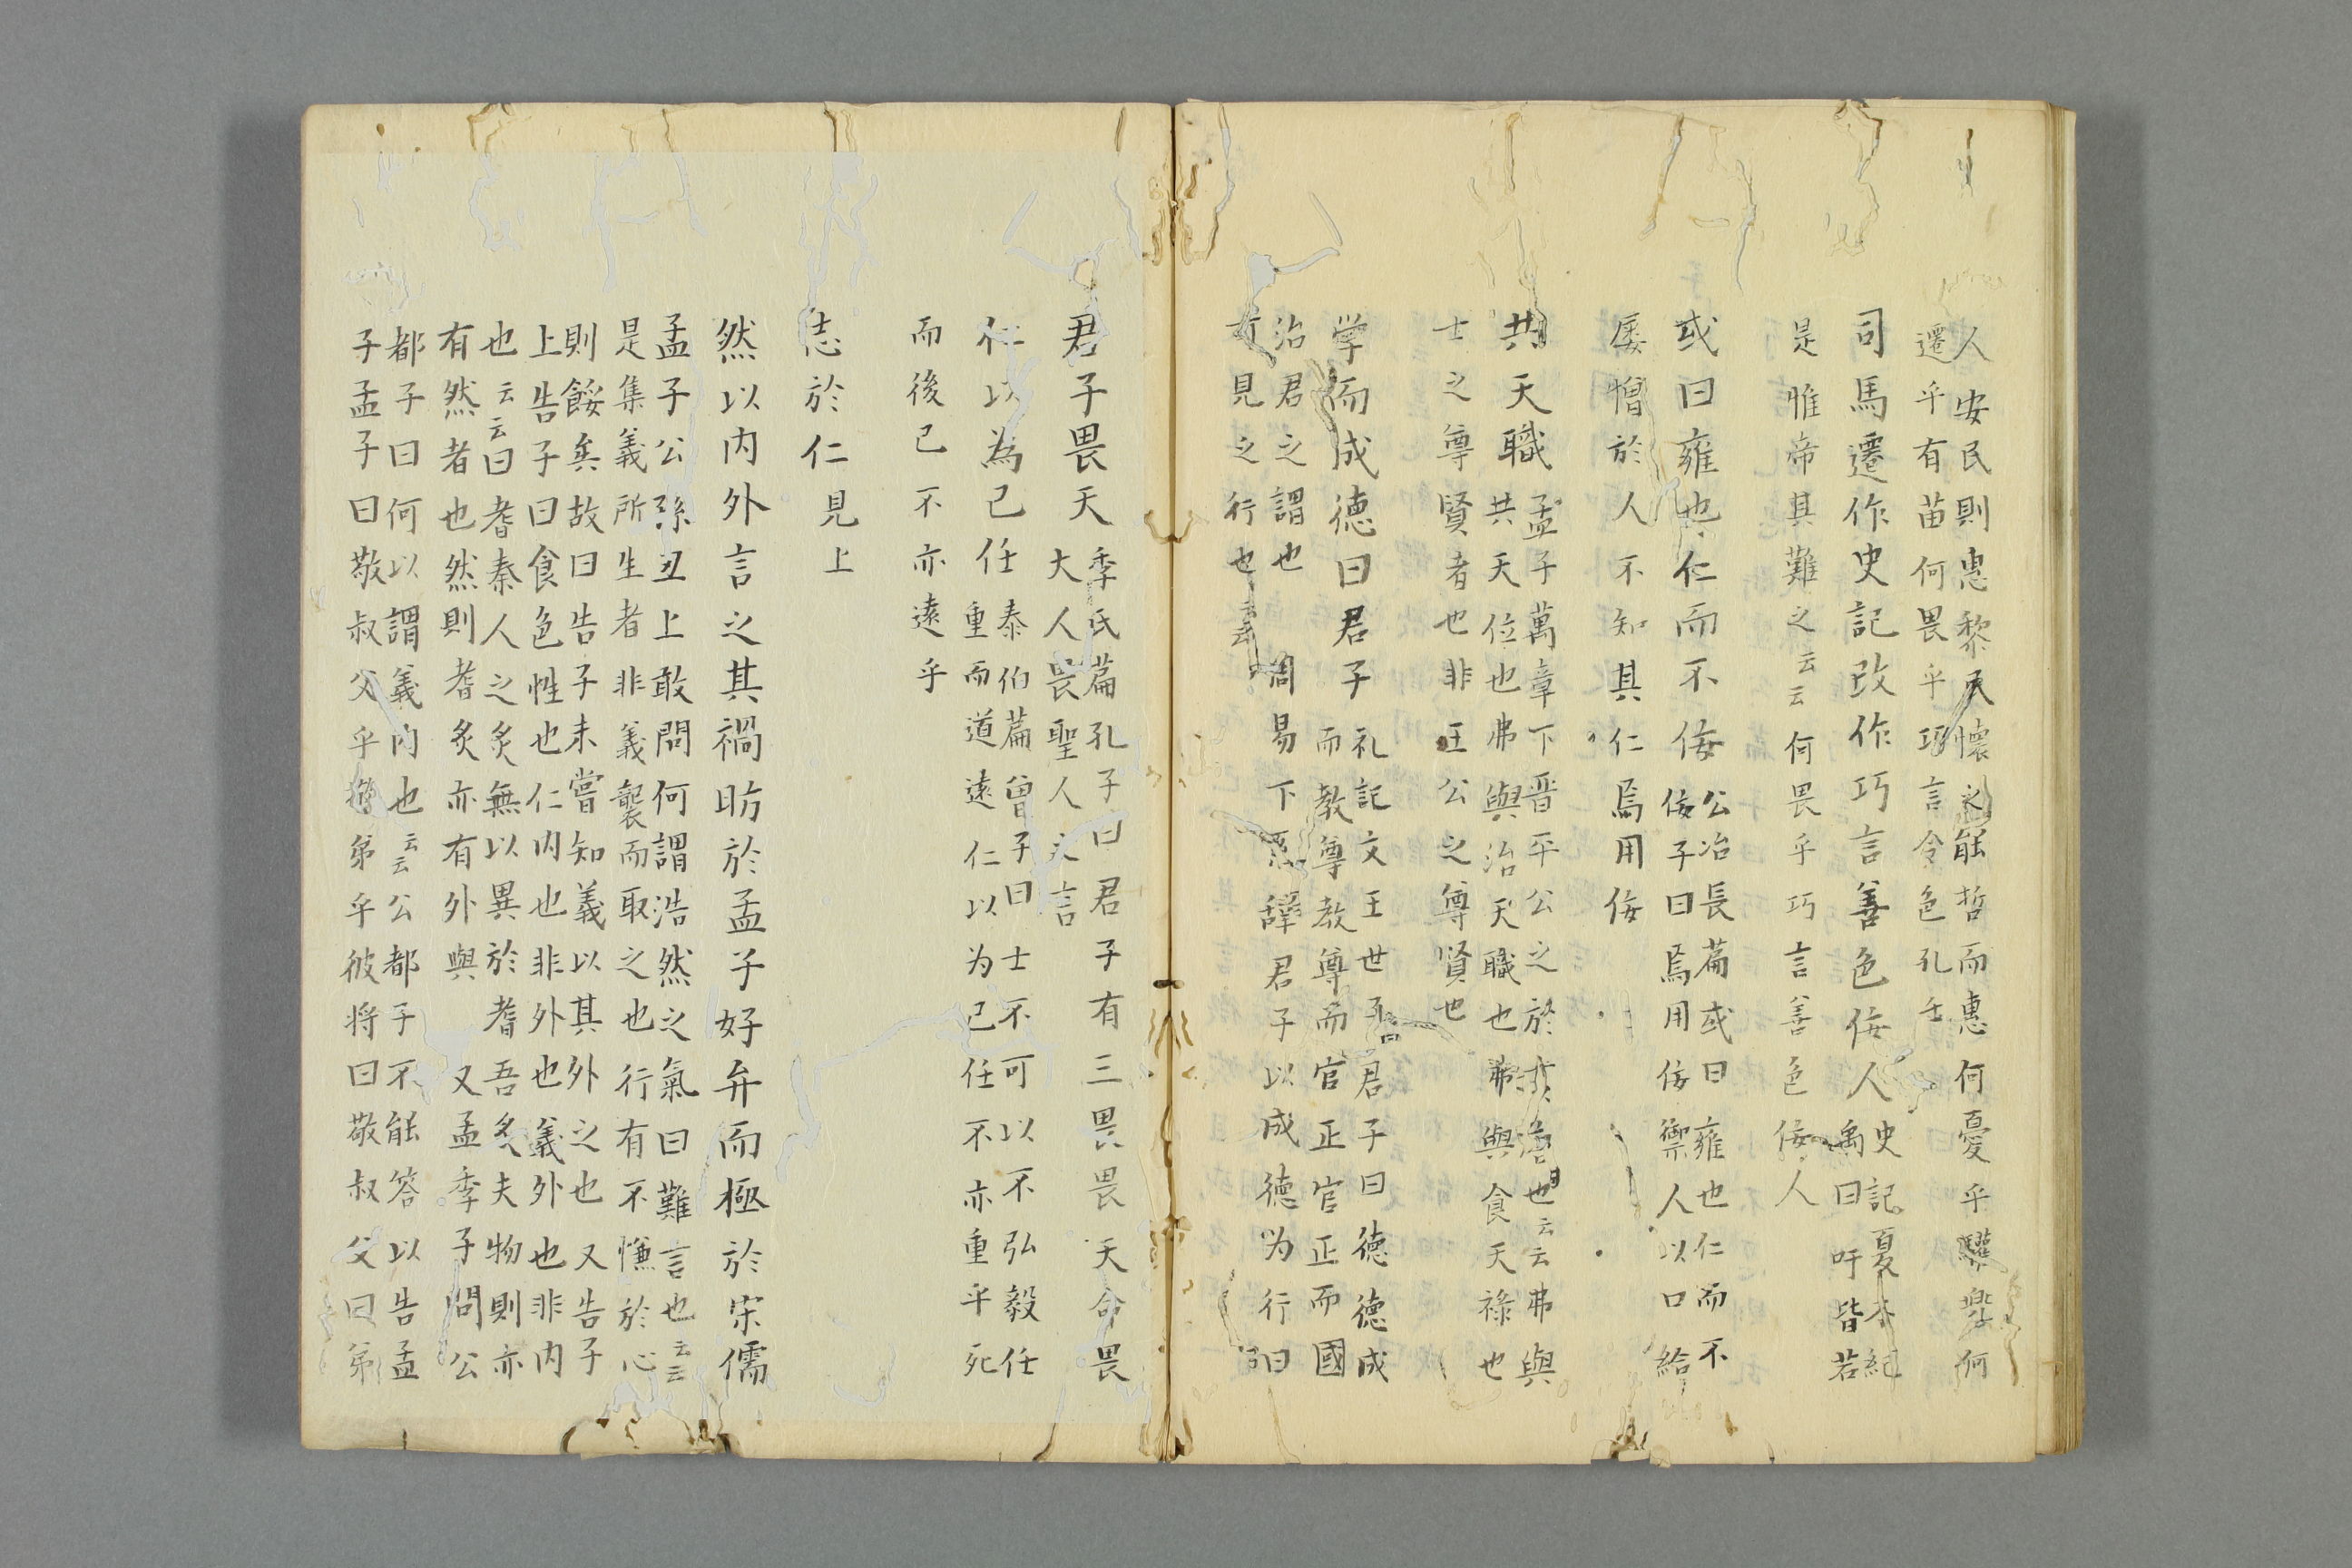 人安民則惠黎民懷之能哲而惠何憂乎驩兜何
遷乎有苗何畏乎巧言令色孔壬
司馬遷作史記改作巧言善色佞人
史記夏本紀
禹曰吁皆若
是惟帝其難之云云何畏乎巧言善色佞人
或曰雍也仁而不佞
公冶長篇或曰雍也仁而不
佞子曰焉用佞禦人以口給
屡憎於人不知其仁焉用佞
共天職
孟子萬章下晋平公之於亥唐也云云弗與
共天位也弗與治天職也弗與食天禄也
士之尊賢者也非王公之尊賢也
学而成徳曰君子
礼記文王世子君子曰徳徳成
而教尊教尊而官正官正而國
治君之謂也
周易下
君子以成徳为行日
可見之行也
君子畏天
季氏篇孔子曰君子有三畏畏天命畏
大人畏聖人之言
仁以為己任
泰伯篇曾子曰士不可以不弘毅任
重而道遠仁以为己任不亦重乎死
而後已不亦遠乎
志於仁
見上
然以内外言之其禍昉於孟子好弁而極於宋儒
孟子公孫丑上敢問何謂浩然之氣曰難言也云云
是集義所生者非義襲而取之也行有不慊於心
則餒矣故曰告子未嘗知義以其外之也 又告子
上告子曰食色性也仁内也非外也義外也非内
也云云曰耆秦人之炙無以異於耆吾炙夫物則亦
有然者也然則耆炙亦有外與 又孟季子問公
都子曰何以謂義内也云云公都子不能答以告孟
子孟子曰敬叔父乎敬弟乎彼将曰敬叔父曰弟